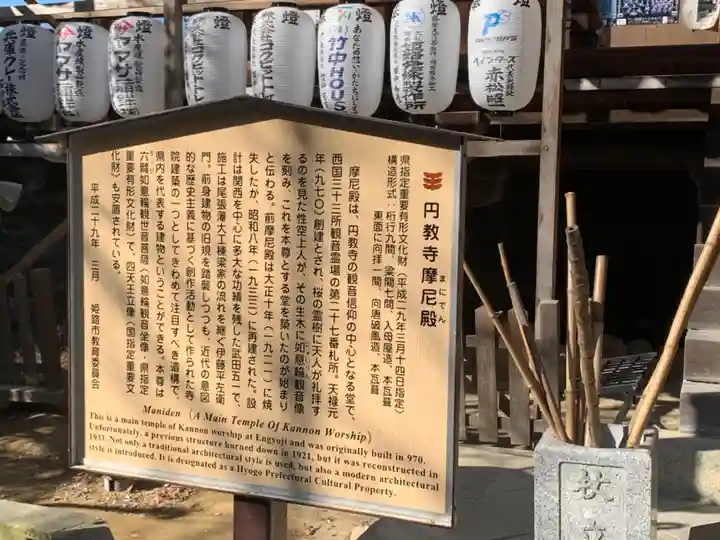 円教寺摩尼殿
まにでん
県指定重要有形文化財（平成二九年三月十四日指定）
構造形式：桁行九間、梁間七間、入母屋造、本瓦葺
東面に向拝一間、向唐破風造、本瓦葺
摩尼殿は、円教寺の観音信仰の中心となる堂で、
西国三十三所観音霊場の第二十七番札所。天禄元
年（九七〇）創建とされ、桜の霊樹に天人が礼拝す
るのを見た性空上人が、その生木に如意輪観音像
を刻み、これを本尊とする堂を築いたのが始まり
と伝わる。前摩尼殿は大正十年（一九二一）に焼
失したが、昭和八年（一九三三）に再建された。設
計は関西を中心に多大な功績を残した武田五一で、
施工は尾張藩大工棟梁家の流れを継ぐ伊藤平左衛
門。前身建物の旧規を踏襲しつつも、近代の意図
的な歴史主義に基づく創作活動として作られた寺
院建築の一つとしてきわめて注目すべき遺構で、
県内を代表する建物ということができる。本尊は
六臂如意輪観世音菩薩（如意輪観音坐像・県指定
重要有形文化財）で、四天王立像（国指定重要文
化財）も安置されている。
平成二十九年　三月　姫路市教育委員会
Maniden （A Main Temple Of Kannon Worship）
This is a main temple of Kannon worship at Engyoji and was originally built in 970.
Unfortunately, a previous structure burned down in 1921, but it was reconstructed in
1933. Not only a traditional architectural style is used, but also a modern architectural
style is introduced. It is designated as a Hyogo Prefectural Cultural Property.
燈
兵庫クレー株式
燈
ヤマサ
燈
ヤマサ
燈
燈
燈
あなたの想い・かたちにします
竹中HOUS
燈
燈
PAINTERS
ペインターズ
赤松昭
杖立